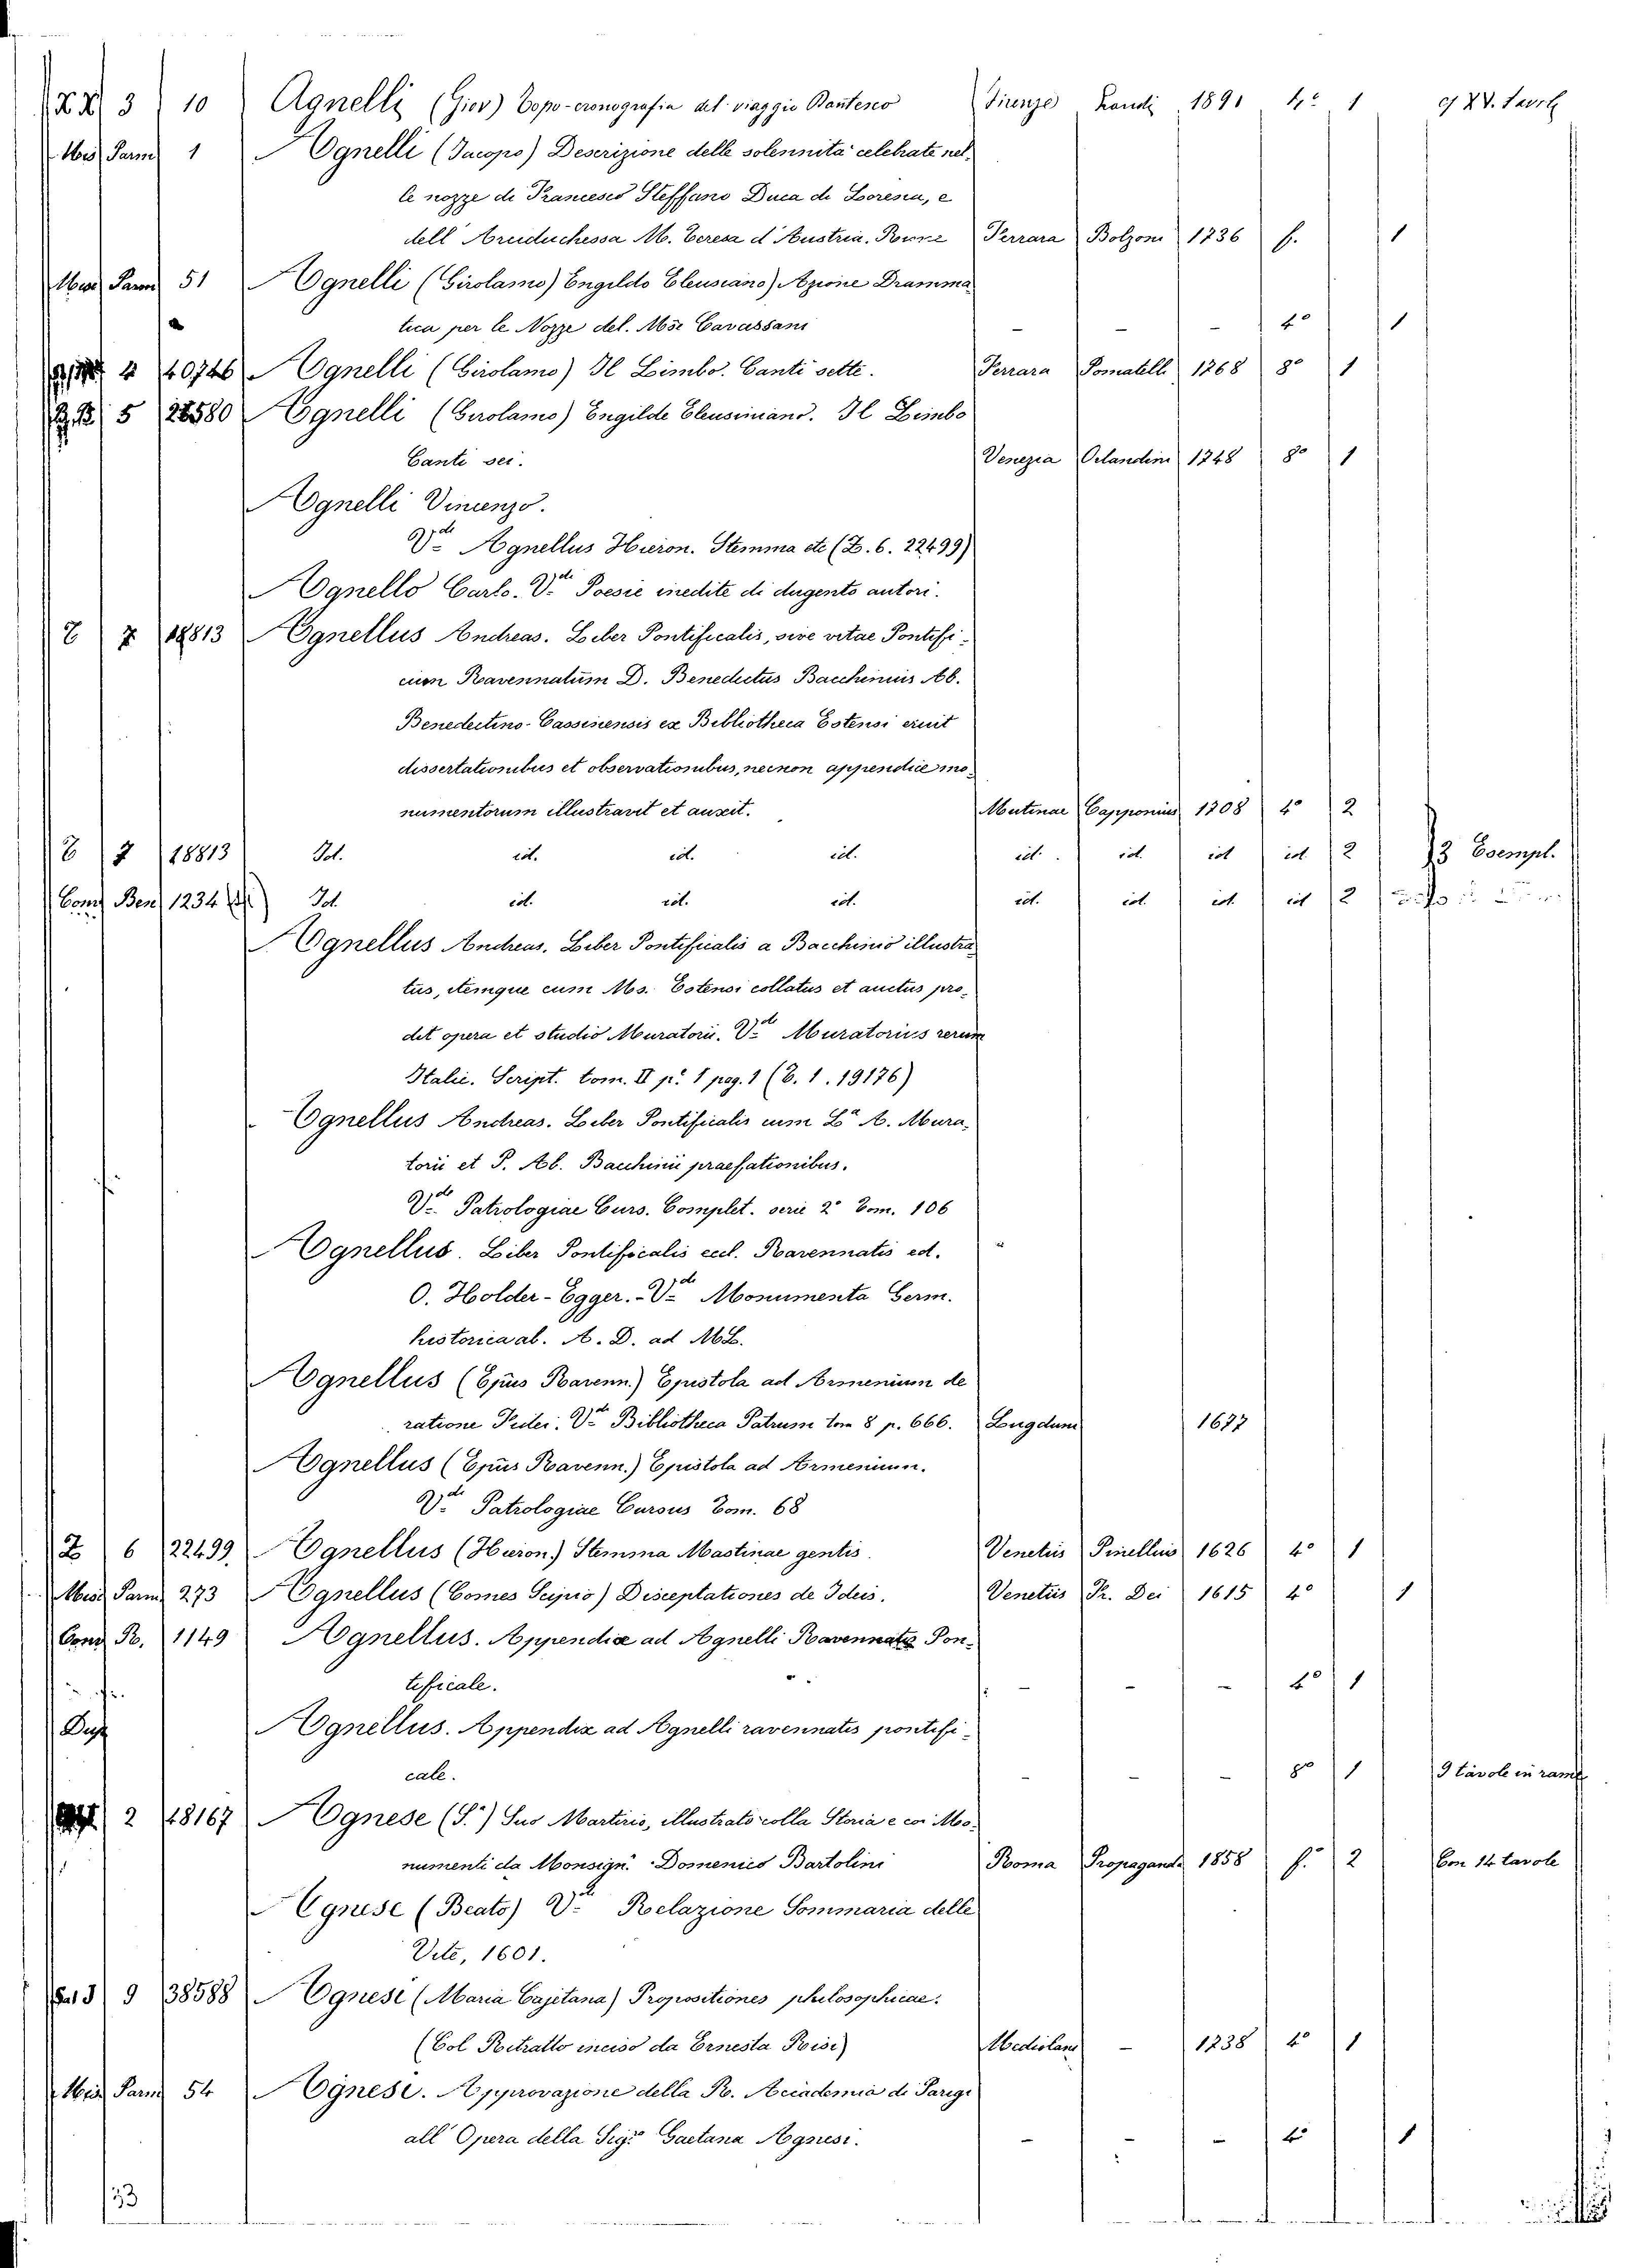 3 10 Agnelli (Giov) Topo-cronografia del viaggio Dantesco Firenze Landi 1891 4° 1 c/ XV. tavole
Misc Parm 1 Agnelli (Jacopo) Descrizione delle solennita celebrate nel-
le nozze di Francesco Steffano Duca di Lorena, e
dell' Arciduchessa M. Teresa d'Austria. Ferrara Bolzoni 1736 f. 1
Misc Parm 51 Agnelli (Girolamo) Engildo Eleusiano) Azione Dramma
tica per le Nozze del. Mse Cavassani - - - 4° 1
4 40746 Agnelli (Girolamo) Il Limbo. Canti sette. Ferrara Pomatelli 1768 8° 1
5 28580 Agnelli (Girolamo) Engilde Eleusiniano. Il Limbo
Canti sei. Venezia Orlandini 1748 8° 1
Agnelli Vincenzo.
Vde Agnellus Hieron. Stemma etc (Z. 6. 22499)
Agnello Carlo. Vde Poesie inedite di dugento autori.
7 18813 Agnellus Andreas. Liber Pontificalis, sive vitae Pontifi-
cum Ravennatum D. Benedictus Bacchinius Ab.
Benedectino-Cassinensis ex Bibliotheca Estensi eruit
dissertationibus et observationibus, necnon appendice mo-
numentorum illustravit et auxit. Mutinae Capponius 1708 4° 2
7 18813 Id. id. id. id. id. id. id id. 2 3 Esempl.
Com Ben 1234 Id. id. id. id. id. id. id. id 2
Agnellus Andreas. Liber Pontificalis a Bacchinio illustra
tus, itemque cum Ms. Estensi collatus et auctus pro-
dit opera et studio Muratorii. Vde Muratorius rerum
Italic. Script. tom. II p. 1 pag. 1 (B. 1. 19176)
Agnellus Andreas. Liber Pontificalis cum L. A. Mura-
torii et P. Ab. Bacchinii praefationibus.
Vde Patrologiae Curs. Complet. serie 2a Tom. 106
Agnellus. Liber Pontificalis eccl. Ravennatis ed.
O. Holder-Egger. - Vde Monumenta Germ.
historica ab. A. D. ad MD.
Agnellus (Epus Ravenn.) Epistola ad Armenium de
ratione Fidei. Vde Bibliotheca Patrum tom 8 p. 666. Lugduni 1677
Agnellus (Epus Ravenn.) Epistola ad Armenium.
Vde Patrologiae Cursus Tom. 68
Z 6 22499 Agnellus (Hieron.) Stemma Mastinae gentis. Venetiis Pinellius 1626 4° 1
Misc Parm 273 Agnellus (Comes Scipio) Disceptationes de Ideis. Venetiis Fr. Dei 1615 4° 1
Com R. 1149 Agnellus. Appendix ad Agnelli Ravennatis Pon-
tificale. - - - 4° 1
Dup Agnellus. Appendix ad Agnelli ravennatis pontifi-
cale. - - - 8° 1 9 tavole in rame
2 18167 Agnese (S.a) Suo Martirio, illustrato colla Storia e coi Mo-
numenti da Monsign. Domenico Bartolini Roma Propaganda 1858 f. 2 Con 14 tavole
Agnese (Beato) Vde Relazione Sommaria delle
Vite, 1601.
9 38588 Agnesi (Maria Cajetana) Propositiones philosophicae.
(Col Ritratto inciso da Ernesta Bisi) Mediolani - 1738 4° 1
Misc Parm 54 Agnesi. Approvazione della R. Accademia di Parigi
all' Opera della Siga Gaetana Agnesi. - - - 4° 1
33